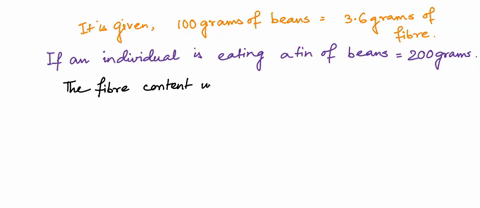 It is given, 100 grams of beans = 3.6 grams of
fibre.
If an individual is eating a tin of beans = 200 grams.
The fibre content w